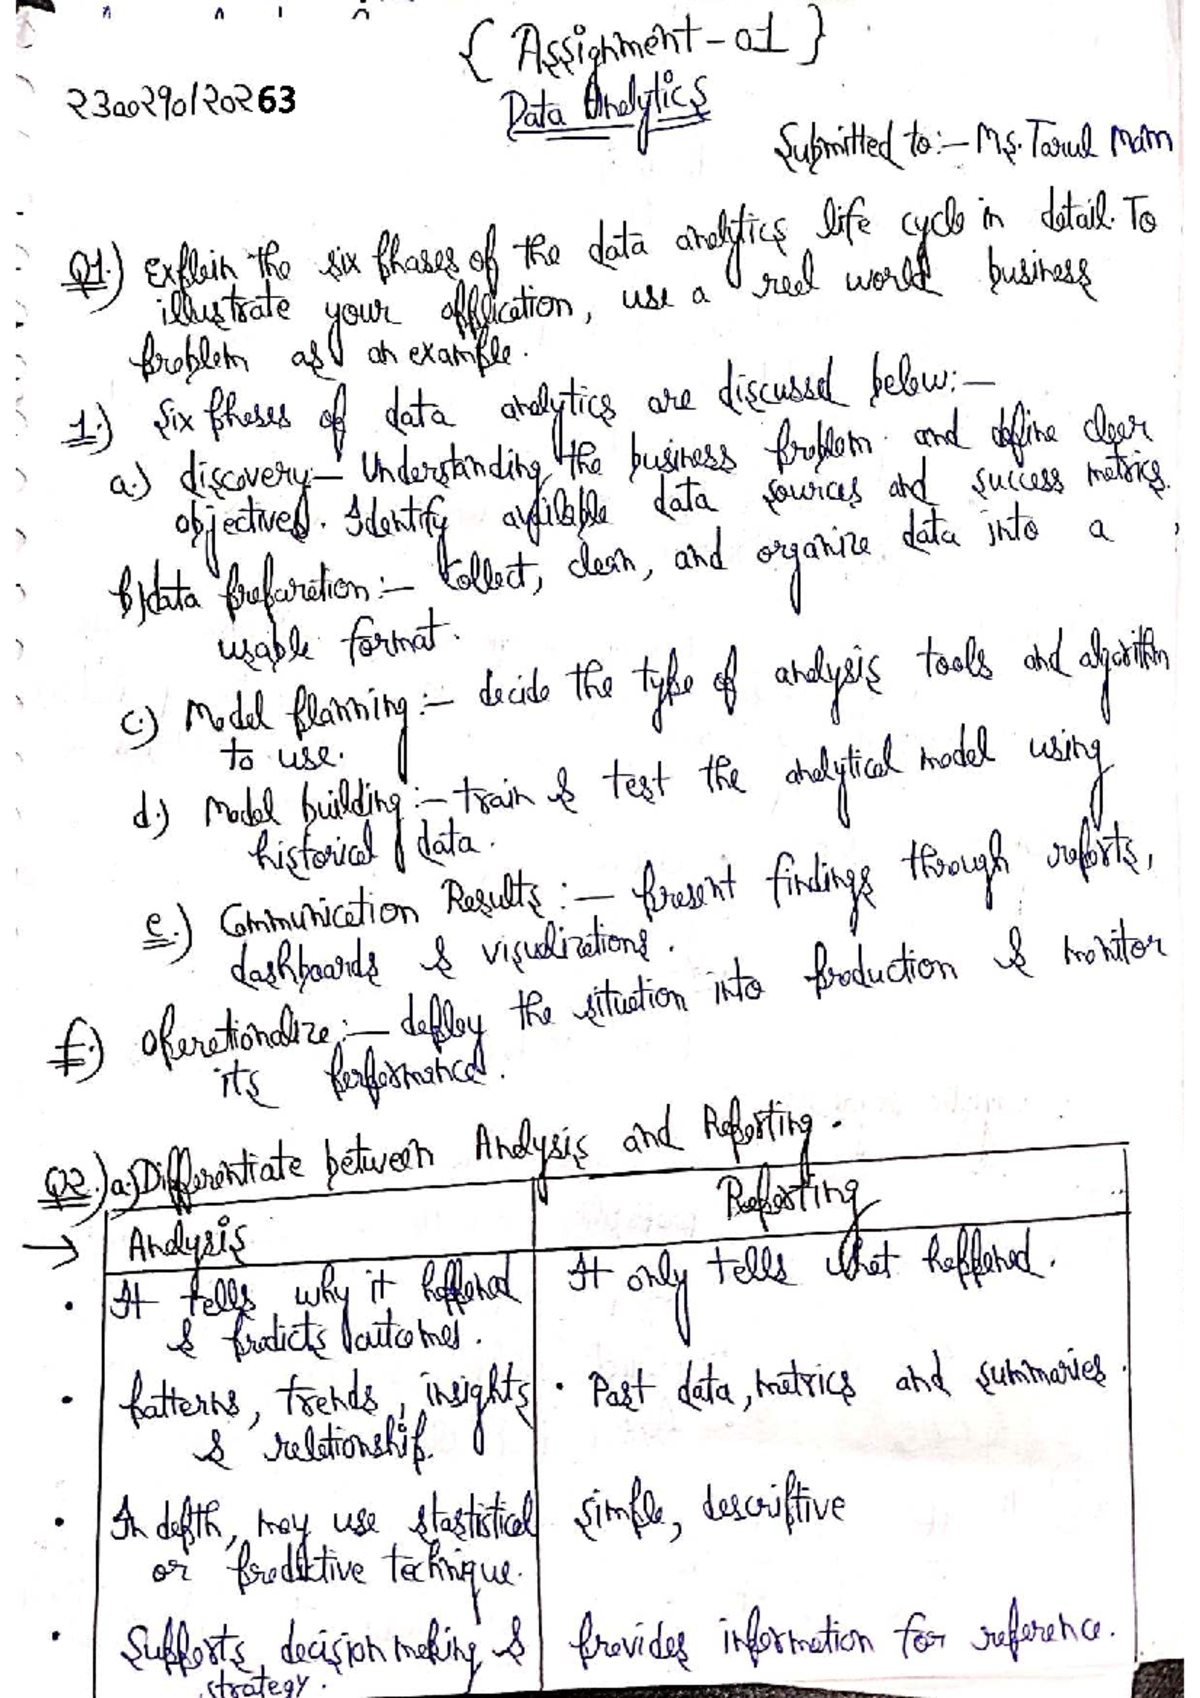 { Assignment-01 }
Data Analytics
Submitted to:- Ms. Tarul Mam
Q1.) Explain the six phases of the data analytics life cycle in detail. To
illustrate your application, use a real world business
problem as an example.
1.) Six phases of data analytics are discussed below:-
a.) discovery:- Understanding the business problem and define clear
objectives. Identify available data sources and success metrics.
b) data preparation:- Collect, clean, and organize data into a
usable format.
c.) Model planning:- decide the type of analysis tools and algorithm
to use.
d.) Model building:- train & test the analytical model using
historical data.
e.) Communication Results:- present findings through reports,
dashboards & visualizations.
f.) Operationalize:- deploy the situation into production & monitor
its performance.
Q2.) a.) Differentiate between Analysis and Reporting.
→ Analysis Reporting
• It tells why it happened It only tells what happened.
& predicts outcomes.
• patterns, trends, insights • Past data, metrics and summaries.
& relationship.
• In depth, may use stastistical simple, descriptive
or predictive technique.
• Supports decision making & provides information for reference.
strategy.